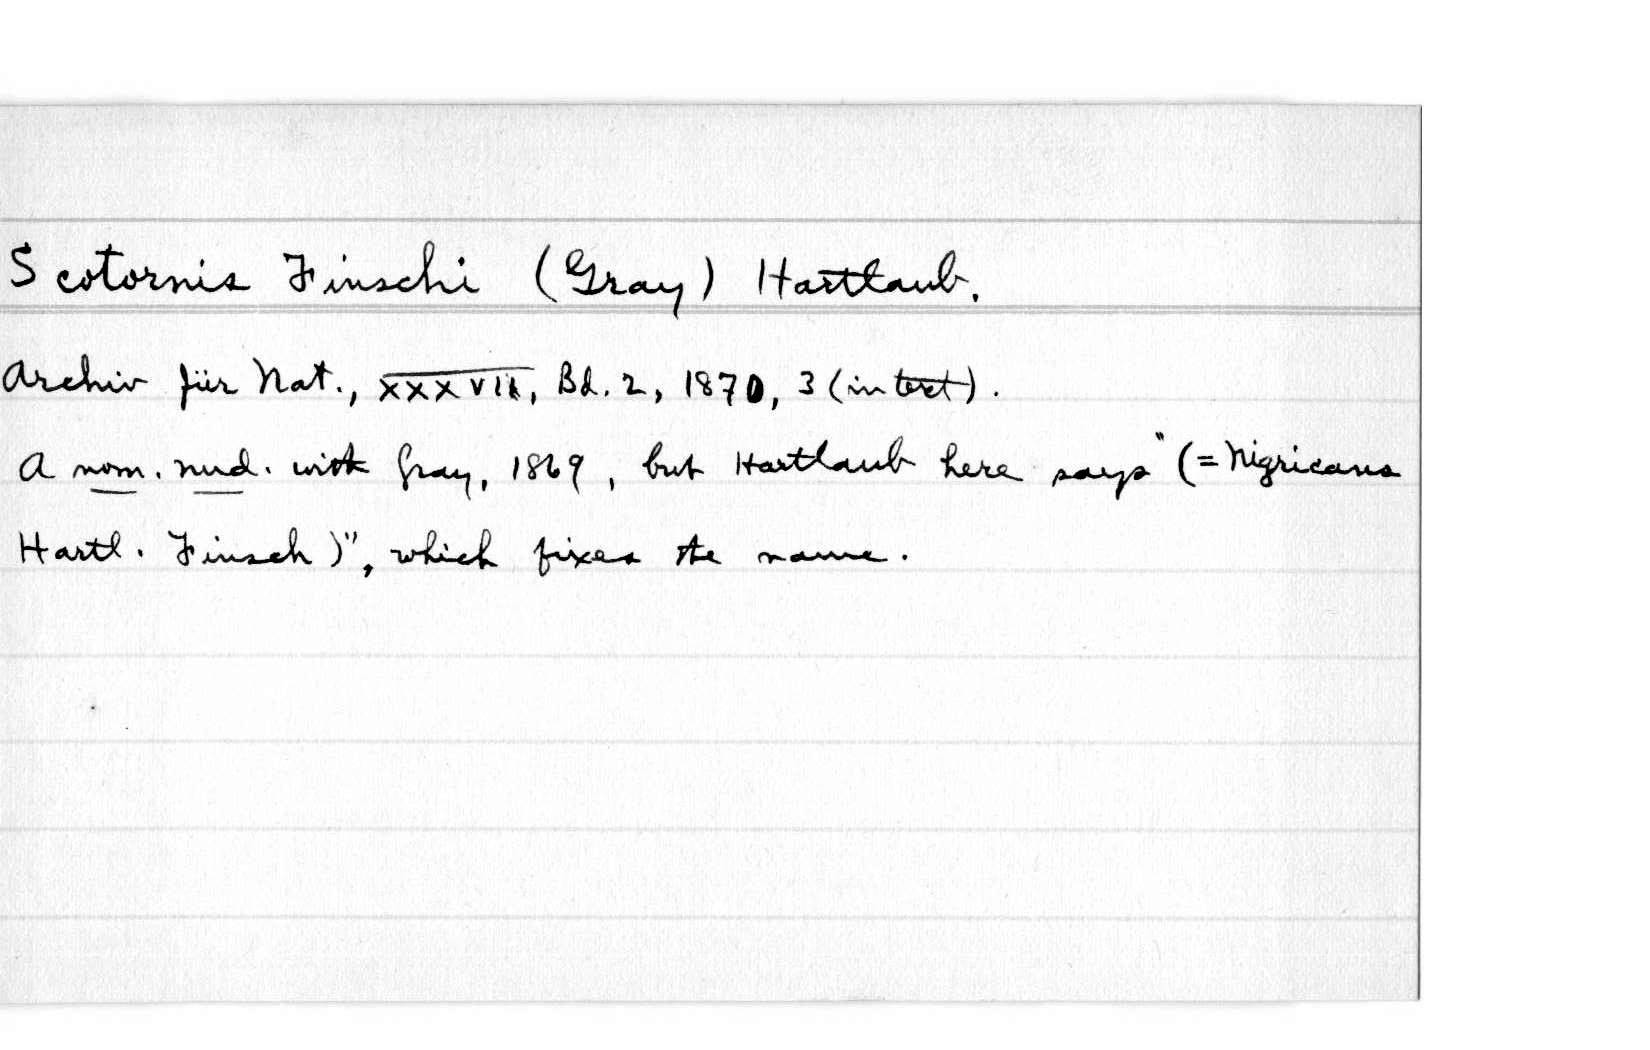 Scotornis Finschi (Gray) Hartlaub.
Archiv für Nat., XXXVII, Bd. 2, 1870, 3 (in text).
A nom. nud. with Gray, 1869, but Hartlaub here says "(= Nigricans
Hartl. Finsch)", which fixes the name.